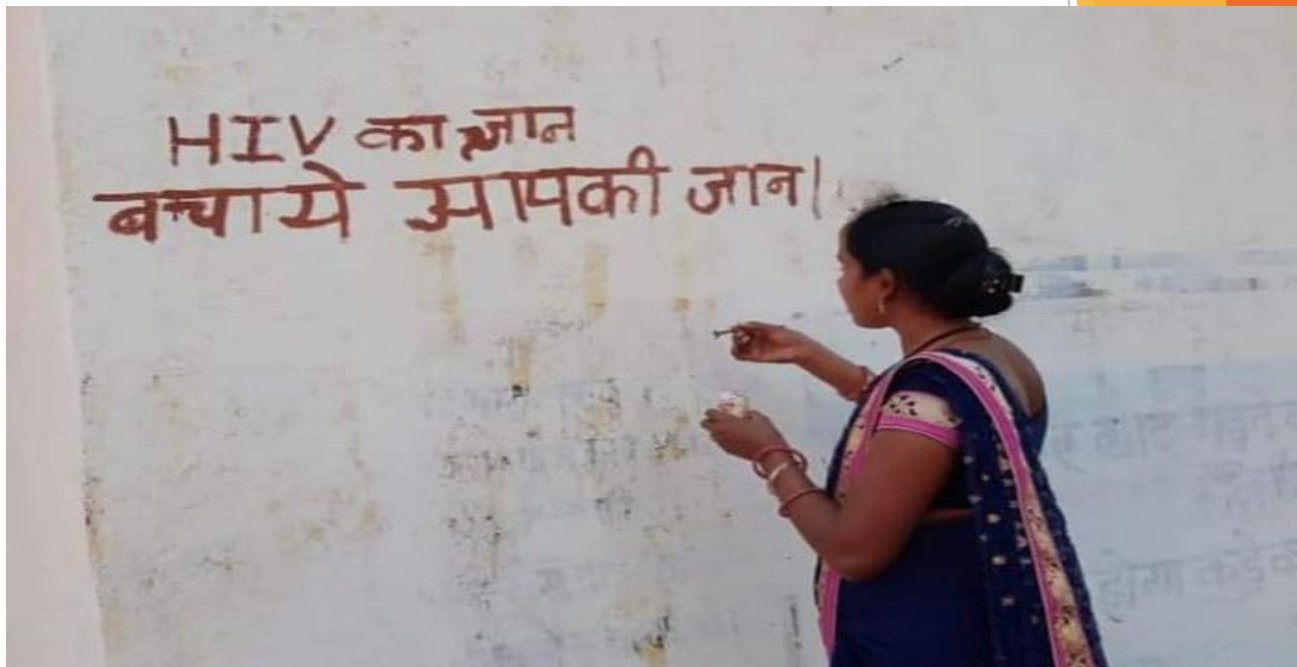 HIV का ज्ञान
बचाये आपकी जान।